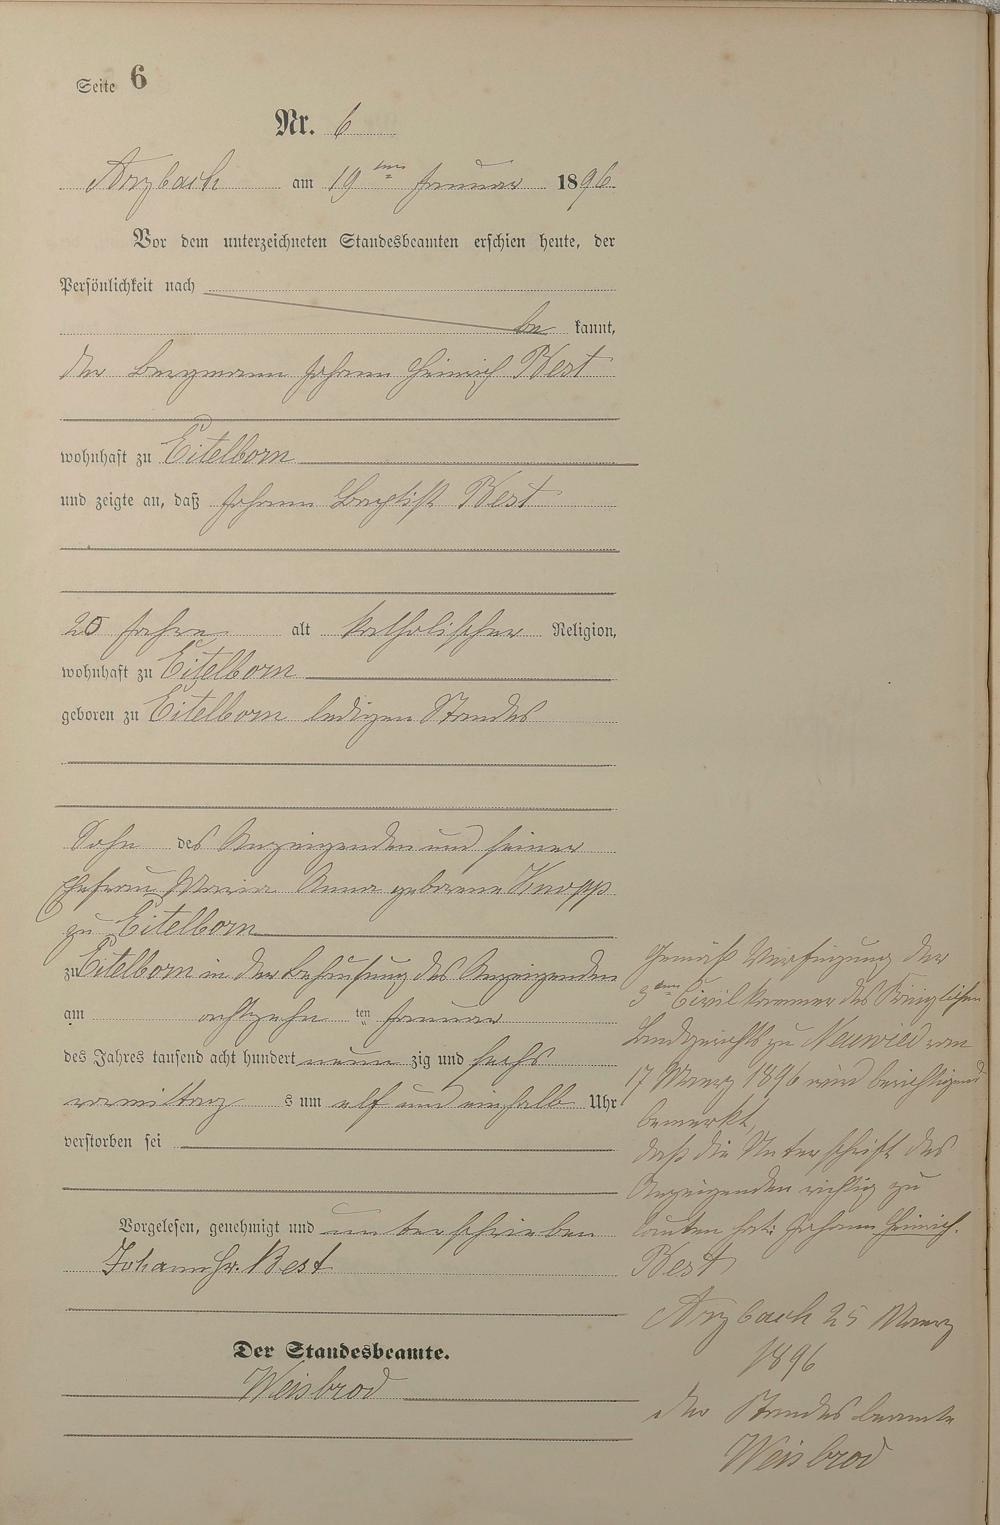 Seite 6
Nr. 6
Arzbach am 19ten Januar 1896.
Vor dem unterzeichneten Standesbeamten erschien heute, der
Persönlichkeit nach
be kannt,
der Bergmann Johann Heinrich Best
wohnhaft zu Eitelborn
und zeigte an, daß Johann Baptist Best
20 Jahre alt katholischer Religion,
wohnhaft zu Eitelborn
geboren zu Eitelborn ledigen Standes
Sohn des Anzeigenden und seiner
Ehefrau Maria Anna geborene Knopp
zu Eitelborn
zu Eitelborn in der Behausung des Anzeigenden
am achtzehn ten Januar
des Jahres tausend acht hundert neun zig und sechs
vormittag s um elf und einhalb Uhr
verstorben sei
Vorgelesen, genehmigt und unterschrieben
Johann Hr. Best
Der Standesbeamte.
Weisbrod
Gemäß Verfügung der
3ten Civilkammer des Königlichen
Landgerichts zu Neuwied vom
17 Maerz 1896 wird berichtigend
bemerkt,
daß die Unterschrift des
Anzeigenden richtig zu
lauten hat: Johann Heinrich.
Best
Arzbach 25 Maerz
1896
Der Standesbeamte
Weisbrod